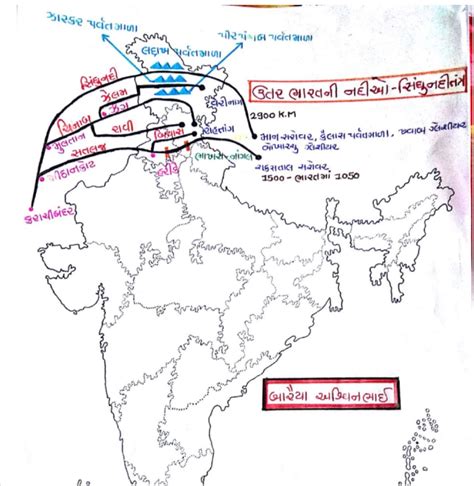 ઝાસ્કર પર્વતમાળા
લદ્દાખ પર્વતમાળા
પીરપંજાલ પર્વતમાળા
સિંધુનદી
ઝેલમ
ઝંગ
ચિનાબ
રાવી
બિયાસ
રોહતાંગ
મુલતાન
સતલજ
હરીકે
ભાખરા-નાંગલ
મીઠાનકોટ
કરાચીબંદર
ઉતર ભારતની નદીઓ-સિંધુનદીતંત્ર
2900 K.M
માન સરોવર, કૈલાસ પર્વતમાળા,
ગ્લેશીયર
રાક્ષસતાલ સરોવર
1500 - ભારતમાં 1050
બારૈયા અશ્વિનભાઈ